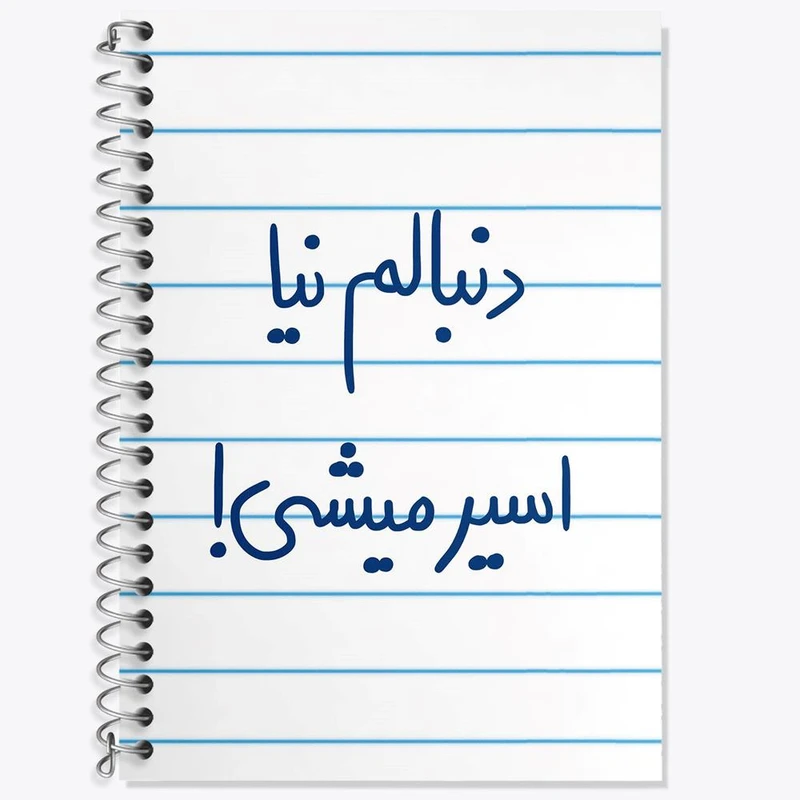 دنبالم نیا
اسیر میشی!